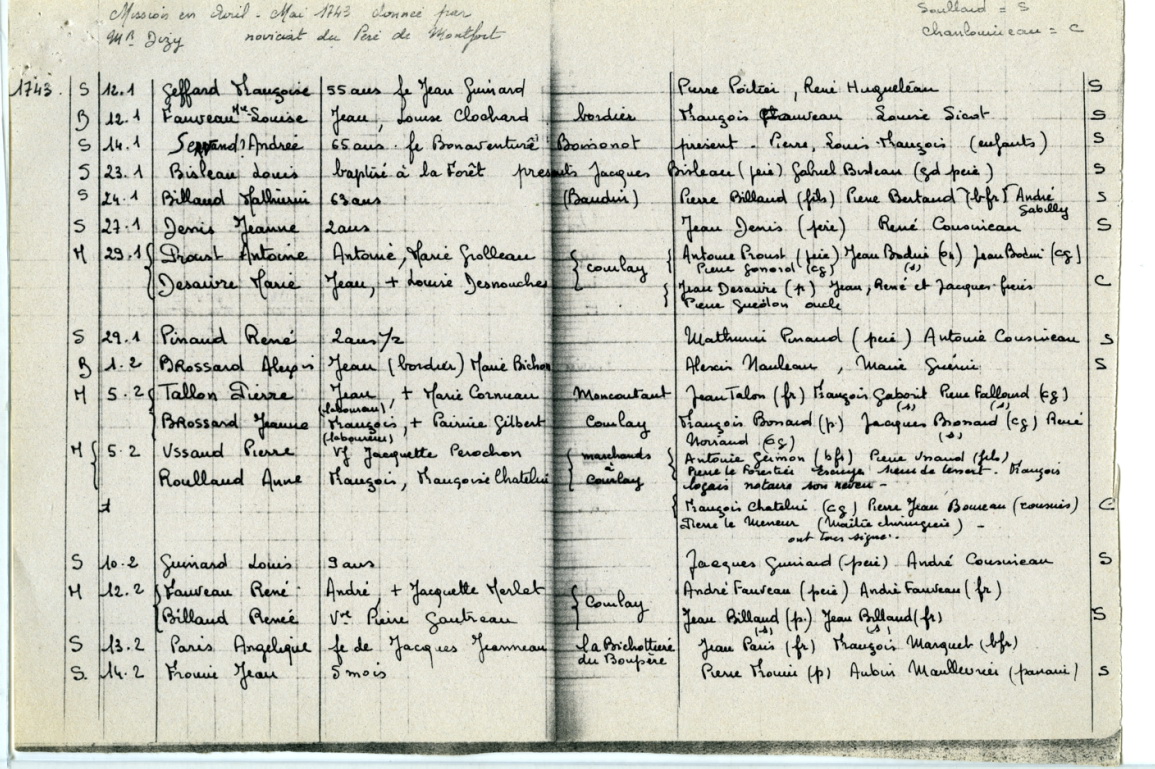 Mission en Avril - Mai 1743 donnée par
Mr Dizy noviciat du Père de Montfort
Soullard = S
Chanlouineau = C
1743. S 12.1 Geffard Françoise 55 ans fe Jean Guinard Pierre Poitier, René Hugueleau S
B 12.1 Fauveau Mie Louise Jean, Louise Clochard bordier François Fauveau Louise Sicot S
S 14.1 Andrée 65 ans - fe Bonaventure Boissonot présent - Pierre, Louis François (enfants) S
S 23.1 Bisleau Louis baptisé à la Forêt présents Jacques Bisleau (père) Gabriel Bisleau (gd père) S
S 24.1 Billaud Mathurin 63 ans (Baudin) Pierre Billaud (fils) Pierre Bertaud (bfr) André S
Gabilly
S 27.1 Denis Jeanne 2 ans Jean Denis (père) René Cousineau S
M 29.1 { Proust Antoine Antoine, Marie Grolleau { Coulay { Antoine Proust (père) Jean Bodin Jean Bodin (cg)
Pierre Gonord (cg) (s)
Desaivre Marie Jean, + Louise Desnouches { Jean Desaivre (p) Jean, René et Jacques frères C
Pierre Guédon oncle
S 29.1 Pinaud René 2 ans 1/2 Mathurin Pinaud (père) Antoine Cousineau S
B 1.2 Brossard Alexis Jean (bordier) Marie Bichon Alexis Nauleau, Marie Guérin S
M 5.2 { Tallon Pierre Jean, + Marie Corneau Moncoutant Jean Talon (fr) François Gaborit Pierre Falloud (cg)
(laboureur) (s) (s)
Brossard Jeanne François, + Perrine Gilbert Coulay François Bonard (p.) Jacques Bronard (cg) René
(laboureur) (s)
(cg)
M { 5.2 Vssaud Pierre Vf Jacquette Perochon { marchands Antoine Germon (bfr) Pierre Vssaud (fils)
à Pierre le Forestier Escuyer sieur de François
Roulland Anne François, Françoise Chatelin Coulay logais notaire son neveu -
{ François Chatelin (cg) Pierre Jean Bonneau (cousins) C
Pierre le Meneur (Maître chirurgien) -
ont tous signé.
S 10.2 Guinard Louis 9 ans Jacques Guinard (père) André Cousineau S
M 12.2 { Fauveau René André, + Jacquette Merlet { Coulay André Fauveau (père) André Fauveau (fr)
Billaud Renée Vve Pierre Gautreau Jean Billaud (p.) Jean Billaud (fr) S
(s) (s)
S 13.2 Paris Angelique fe de Jacques Jeanneau la Bichottière Jean Paris (fr) François Marquet (bfr)
du Boupère
S. 14.2 Frouin Jean 5 mois Pierre Frouin (p) Aubin Maullevrier (parain) S